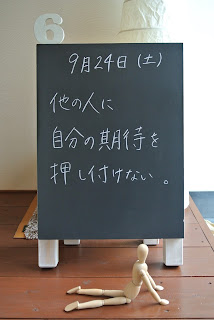 6
9月24日(土)
他の人に
自分の期待を
押し付けない。